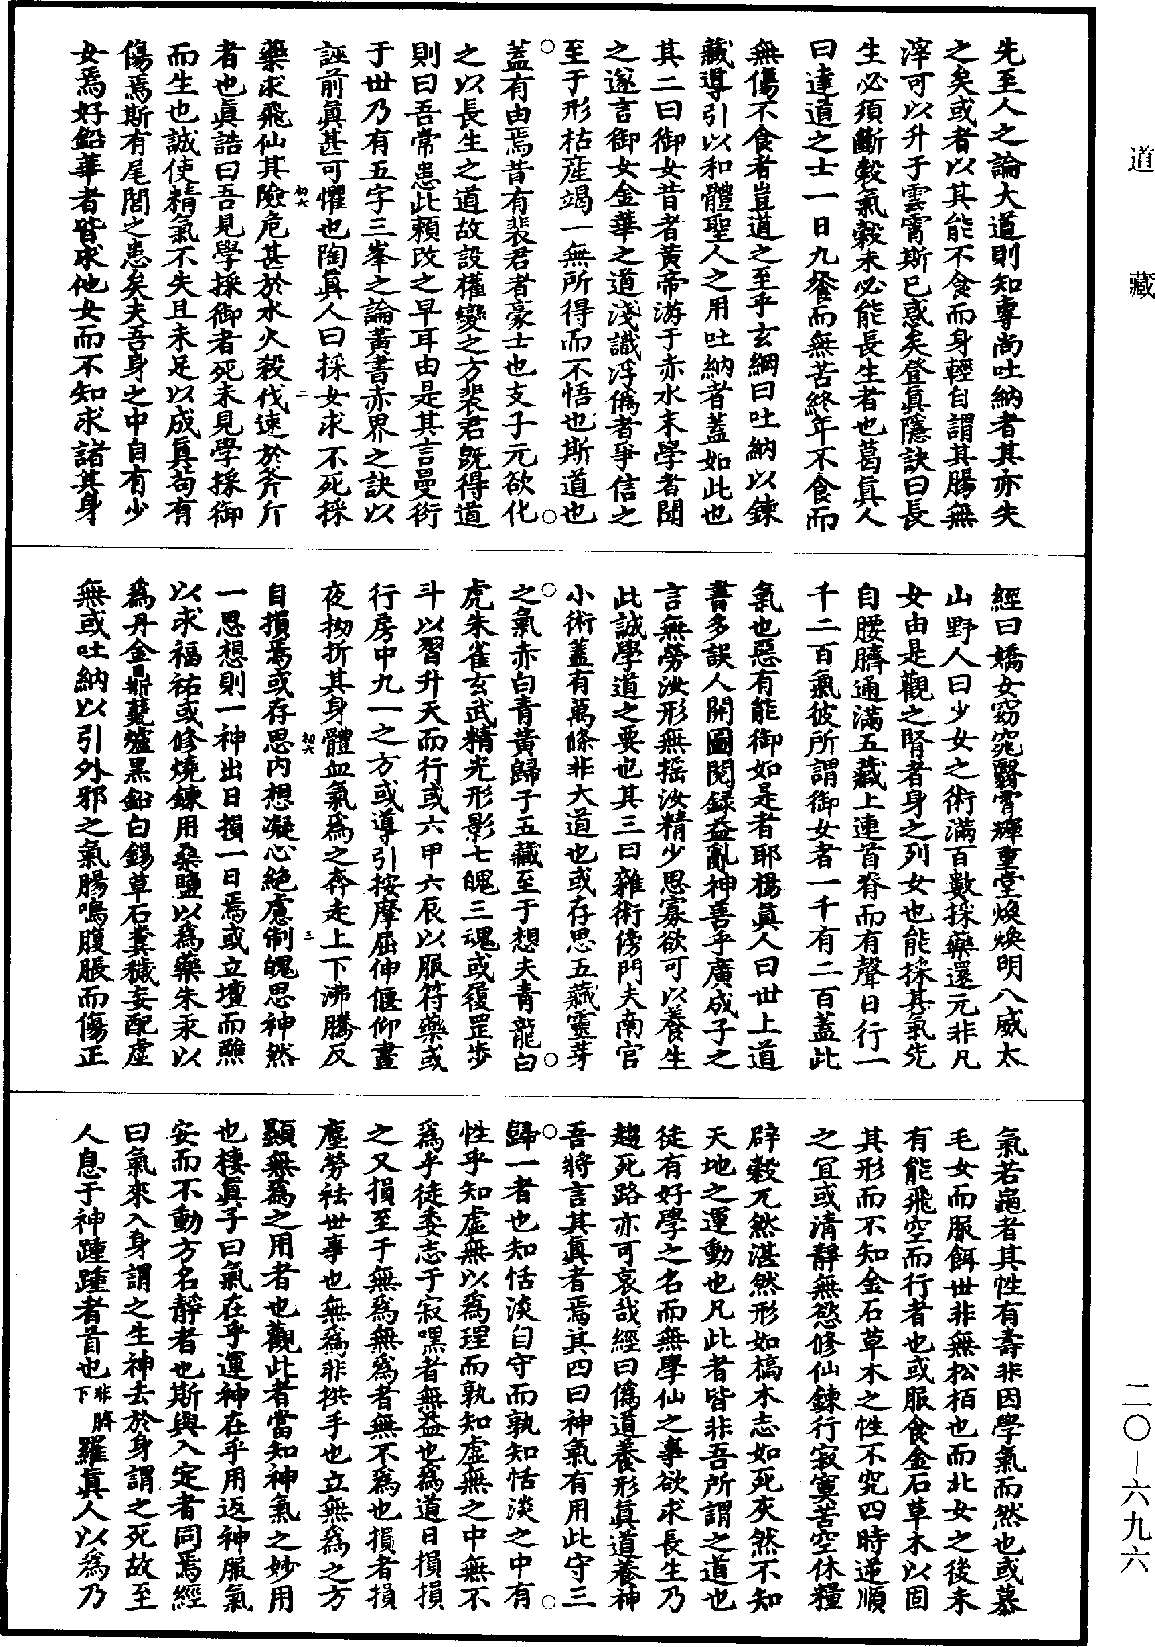 先至人之論大道則知專尚吐納者其亦失
之矣或者以其能不食而身輕自謂其腸無
滓可以升于雲霄斯已惑矣登真隱訣曰長
生必須斷穀氣穀未必能長生者也葛真人
曰達道之士一日九飡而無苦終年不食而
無傷不食者豈道之至乎玄綱曰吐納以鍊
藏導引以和體聖人之用吐納者蓋如此也
其二曰御女昔者黃帝游于赤水末學者聞
之遂言御女金華之道淺識浮僞者爭信之
至于形枯産竭一無所得而不悟也斯道也
蓋有由焉昔有裴君者豪士也支子元欲化
之以長生之道故設權變之方裴君旣得道
則曰吾常患此賴改之早耳由是其言曼衍
于世乃有五字三峯之論黃書赤界之訣以
誣前真甚可懼也陶真人曰採女求不死採
藥求飛仙其險危甚於水火殺伐速於斧斤
者也眞誥曰吾見學採御者死未見學採御
而生也誠使精氣不失且未足以成真苟有
傷焉斯有尾閭之患矣夫吾身之中自有少
女焉好鉛華者皆求他女而不知求諸其身
經曰嬌女窈窕翳霄輝重堂煥煥明八威太
山野人曰少女之術滿百數採藥還元非凡
女由是觀之腎者身之列女也能採其氣先
自腰臍通滿五藏上連首脊而有聲日行一
千二百氣彼所謂御女者一千有二百蓋此
氣也惡有能御如是者耶楊真人曰世上道
書多誤人開圖閱録益亂神善乎廣成子之
言無勞汝形無摇汝精少思寡欲可以養生
此誠學道之要也其三曰雜術傍門夫南宫
小術蓋有萬條非大道也或存思五藏靈芽
之氣赤白青黄歸于五藏至于想夫青龍白
虎朱雀玄武精光形影七魄三魂或履罡步
斗以習升天而行或六甲六辰以服符藥或
行房中九一之方或導引按摩屈伸偃仰晝
夜拗折其身體血氣爲之奔走上下沸騰反
自損焉或存思内想凝心絶慮制魄思神然
一思想則一神出日損一日焉或立壇而醮
以求福祐或修燒鍊用桑鹽以爲藥朱汞以
爲丹金鼎甆爐黑鉛白錫草石糞穢妄配虚
無或吐納以引外邪之氣腸鳴腹脹而傷正
氣若龜者其性有壽非因學氣而然也或慕
毛女而服餌世非無松栢也而北女之後未
有能飛空而行者也或服食金石草木以固
其形而不知金石草木之性不究四時逆順
之宜或清靜無慾修仙鍊行寂寞苦空休糧
辟穀兀然湛然形如槁木志如死灰然不知
天地之運動也凡此者皆非吾所謂之道也
徒有好學之名而無學仙之事欲求長生乃
趨死路亦可哀哉經曰僞道養形真道養神
吾將言其真者焉其四曰神氣有用此守三
歸一者也知恬淡自守而孰知恬淡之中有
性乎知虚無以爲理而孰知虚無之中無不
爲乎徒委志于寂嘿者無益也爲道日損損
之又損至于無爲無爲者無不爲也損者損
塵勞袪世事也無爲非拱手也立無爲之方
顯無爲之用者也觀此者當知神氣之妙用
也棲真子曰氣在乎運神在乎用返神服氣
安而不動方名靜者也斯與入定者同焉經
曰氣來入身謂之生神去於身謂之死故至
人息于神踵踵者首也非臍下羅真人以爲乃
道藏
二〇—六九六
初六 二
初六 三